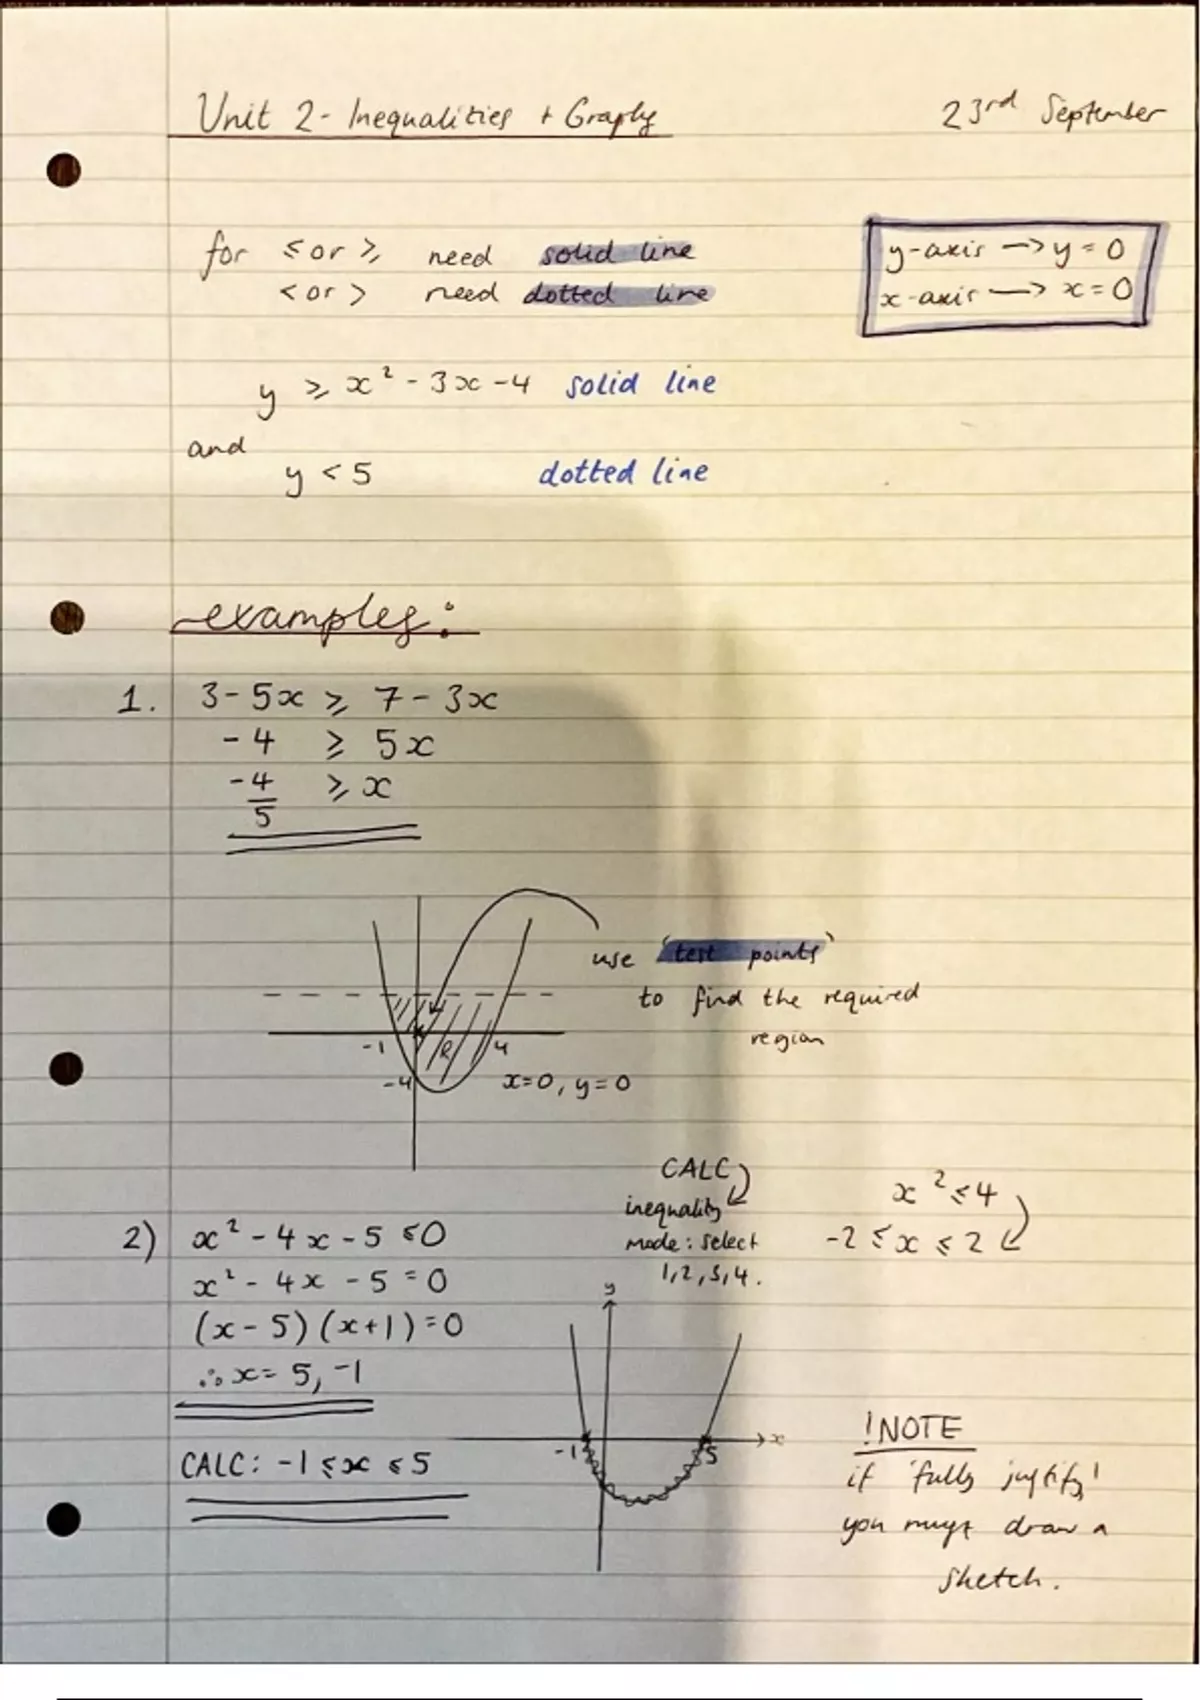 Unit 2 - Inequalities + Graphs
23rd September
for ⩽ or ⩾ need solid line
< or > need dotted line
y-axis → y = 0
x-axis → x = 0
y ⩾ x² - 3x - 4 solid line
and
y < 5 dotted line
examples:
1. 3 - 5x ⩾ 7 - 3x
-4 ⩾ 5x
-4/5 ⩾ x
use 'test points'
to find the required
region
-1
4
-4
R
x=0, y=0
CALC
inequality
mode: select
1,2,3,4.
x² ⩽ 4
-2 ⩽ x ⩽ 2
2) x² - 4x - 5 ⩽ 0
x² - 4x - 5 = 0
(x - 5)(x+1) = 0
∴ x = 5, -1
CALC: -1 ⩽ x ⩽ 5
y
x
-1
5
!NOTE
if 'fully justify'
you must draw a
sketch.